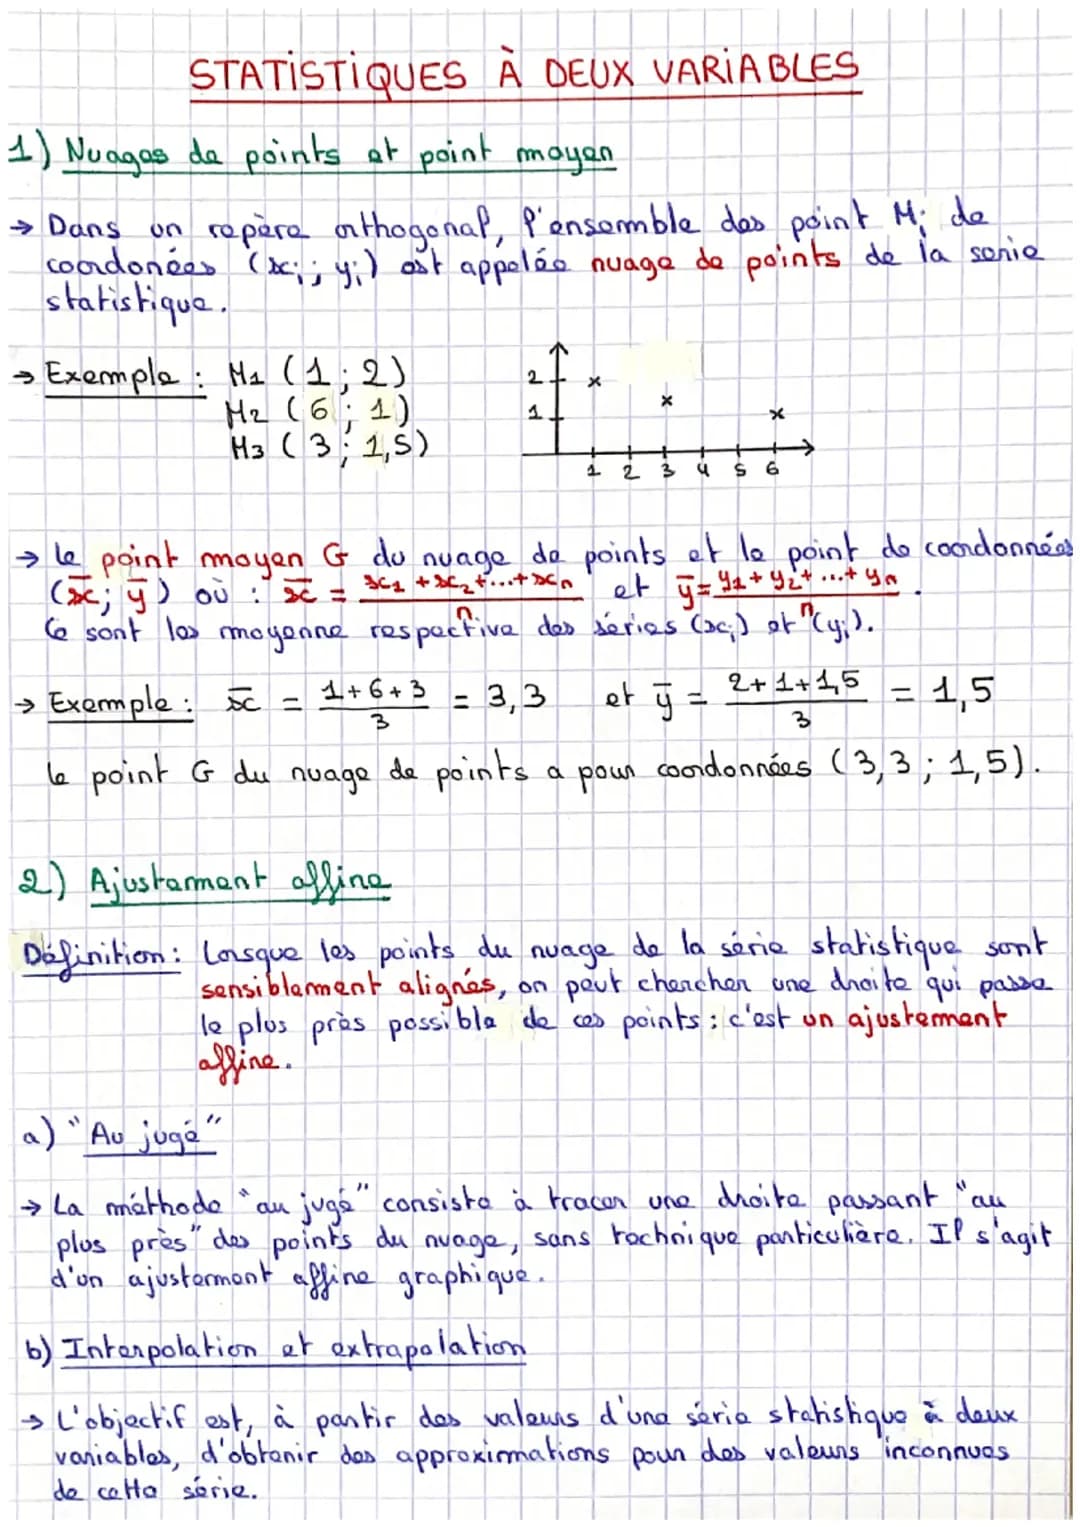 STATISTIQUES À DEUX VARIABLES
1) Nuages de points et point moyen
→ Dans un repère orthogonal, l'ensemble des point Mi de
coordonées (xi ; yi) est appelée nuage de points de la serie
statistique.
→ Exemple : M1 (1 ; 2)
M2 (6 ; 1)
M3 (3 ; 1,5)
2
1
1 2 3 4 5 6
→ le point moyen G du nuage de points et le point de coordonnées
(x̄ ; ȳ) où : x̄ = (x1 + x2 + ... + xn)/n et ȳ = (y1 + y2 + ... + yn)/n .
Ce sont les moyenne respective des séries (xi) et (yi).
→ Exemple : x̄ = (1+6+3)/3 = 3,3 et ȳ = (2+1+1,5)/3 = 1,5
le point G du nuage de points a pour coordonnées (3,3 ; 1,5).
2) Ajustement affine
Définition : Lorsque les points du nuage de la série statistique sont
sensiblement alignés, on peut chercher une droite qui passe
le plus près possible de ces points : c'est un ajustement
affine.
a) "Au jugé"
→ La méthode "au jugé" consiste à tracer une droite passant "au
plus près" des points du nuage, sans technique particulière. Il s'agit
d'un ajustement affine graphique.
b) Interpolation et extrapolation
→ L'objectif est, à partir des valeurs d'une série statistique à deux
variables, d'obtenir des approximations pour des valeurs inconnues
de cette série.